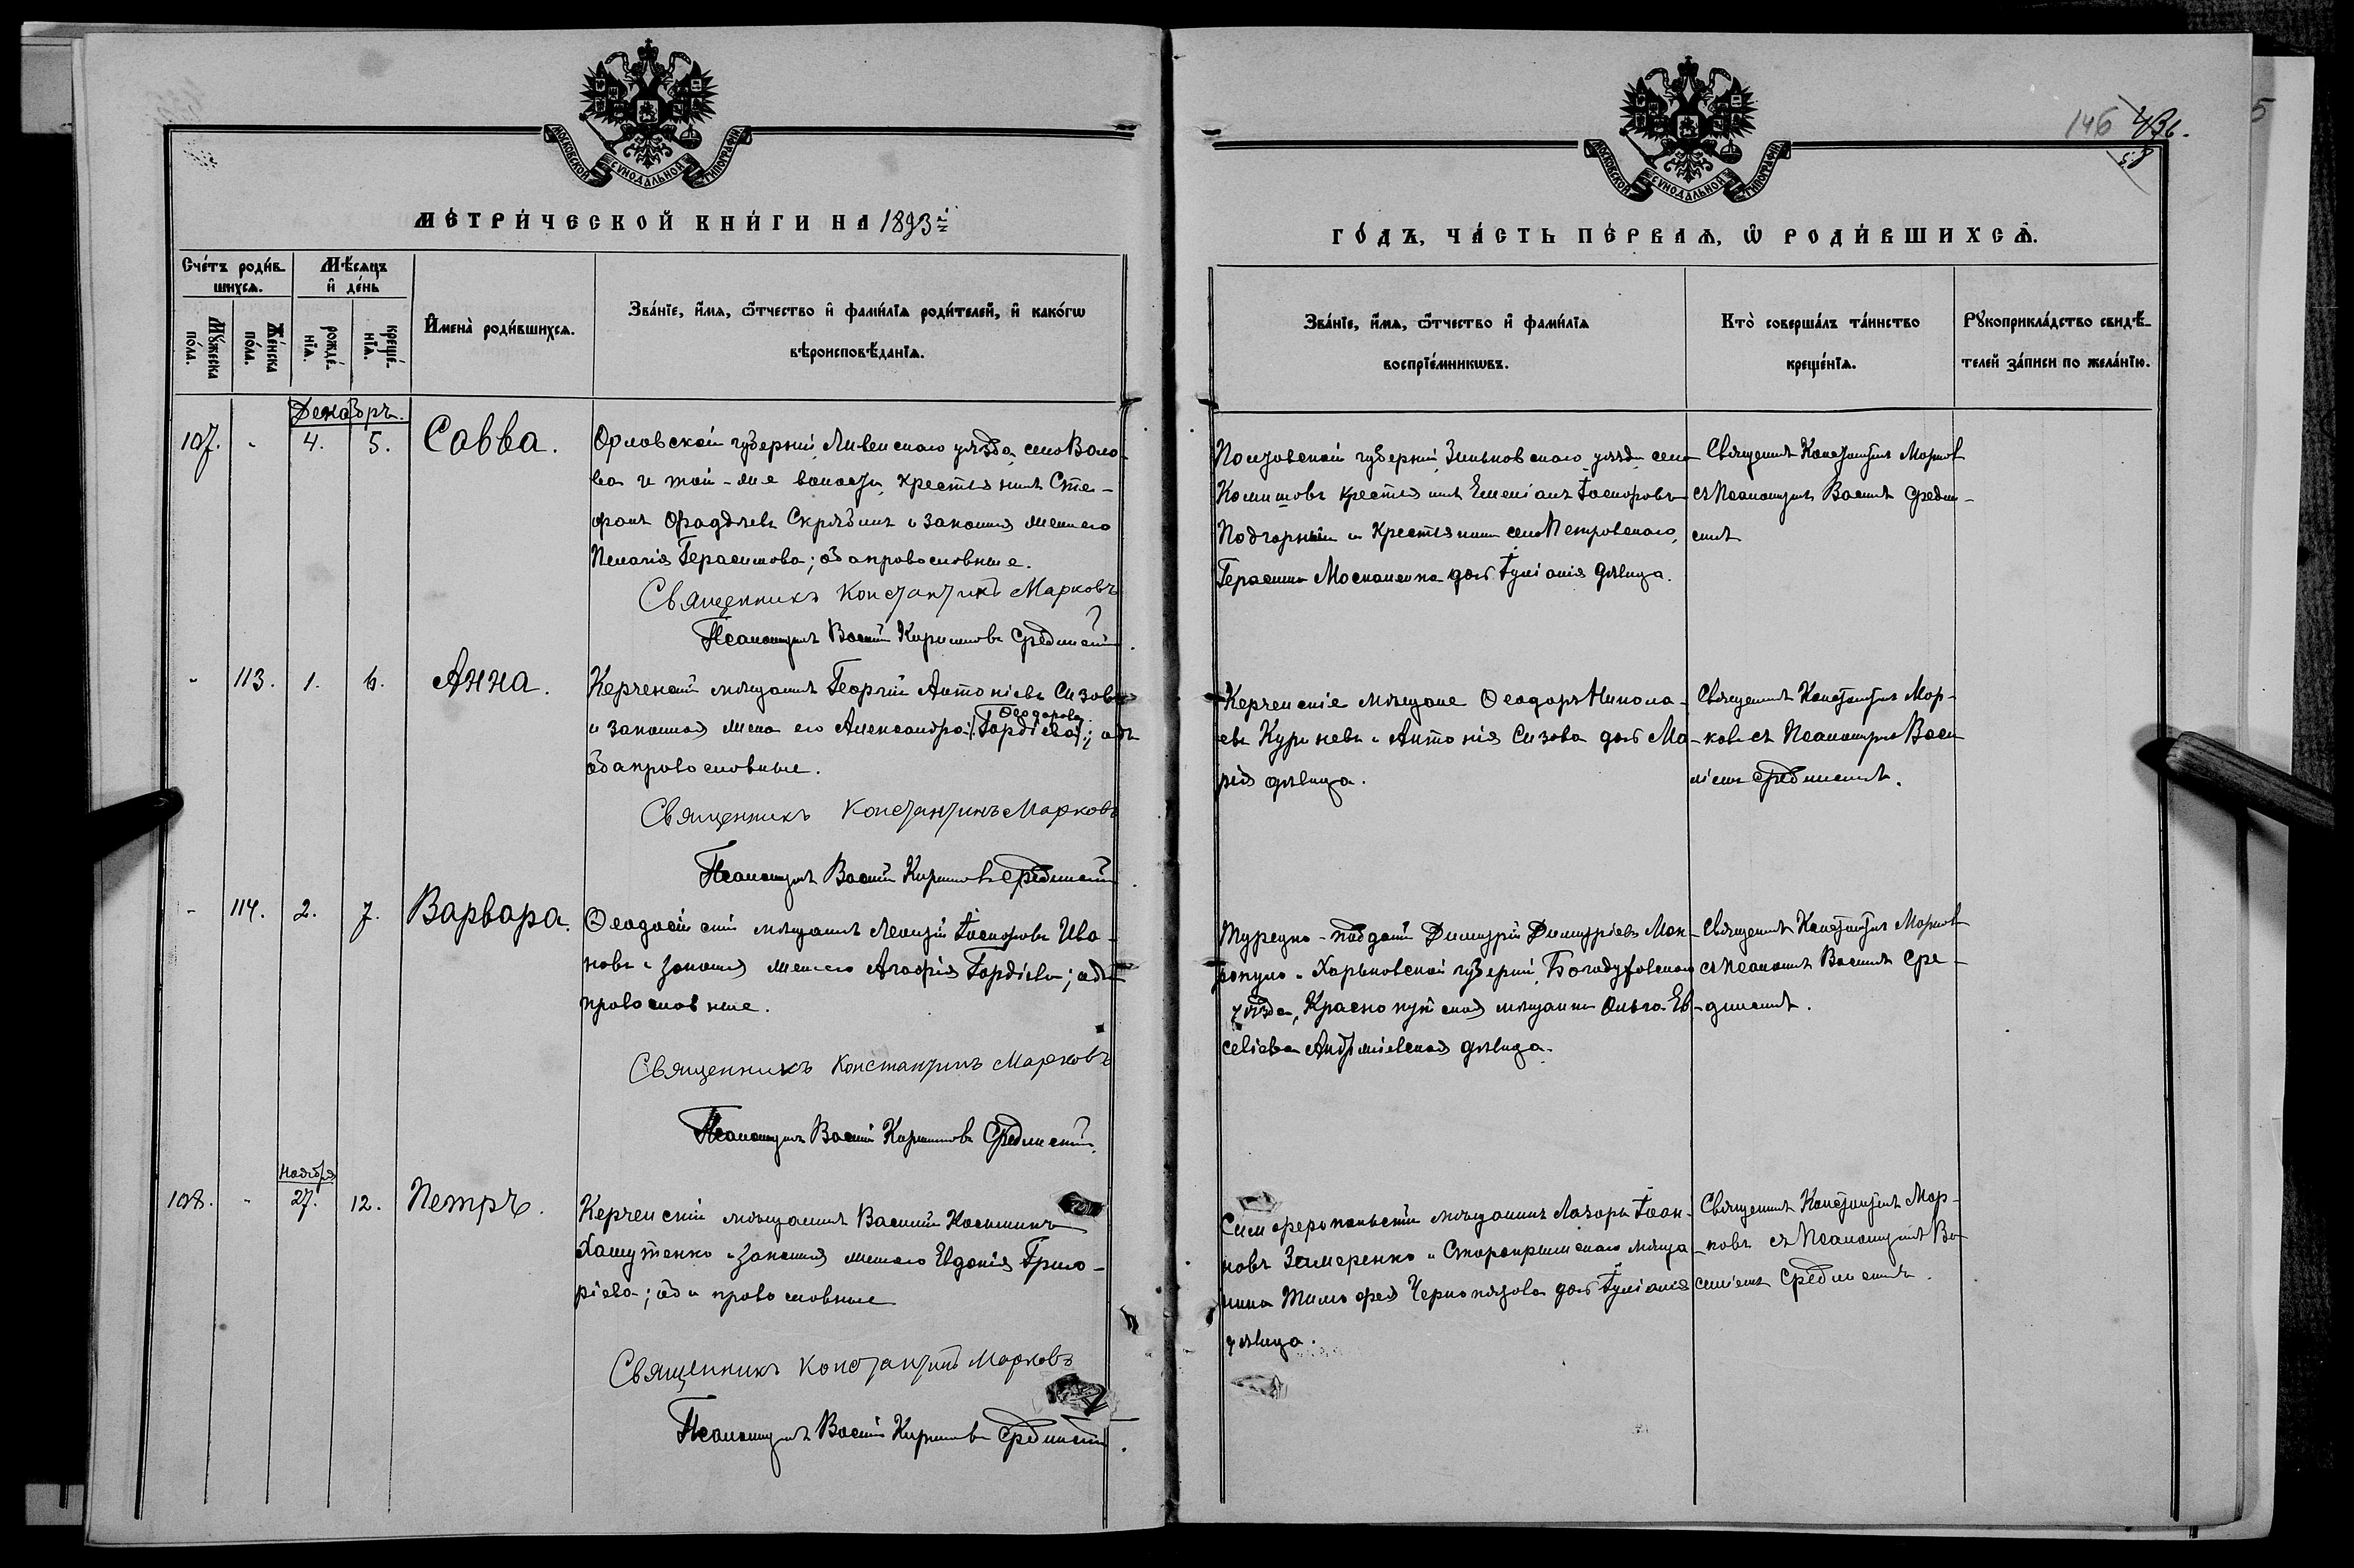 МОСКОВСКОЙ СѴНОДАЛЬНОЙ ТИПОГРАФІИ
МЕТРИ́ЧЕСКОЙ КНИ́ГИ НА 1893й
Сче́тъ роди́в-
шихся.
Мѣ́сяцъ
и҆ де́нь
Мꙋ́жеска
по́ла.
Же́нска
по́ла.
рожде́-
нїѧ.
креще́-
нїѧ.
И҆мена̀ роди́вшихсѧ.
Зва́нїе, и҆́мѧ, ѻ҆́тчество и҆ фами́лїѧ роди́телей, и҆ како́гѡ
вѣроисповѣ́данїѧ.
Декабръ.
107. - 4. 5. Савва.
Орловской губерніи, Ливенскаго уѣзда, села Воло-
ва и той-же волости, крестьянинъ Сте-
фанъ Фаддѣевъ Скрябинъ и законная жена его
Пелагія Герасимова; оба православные.
Священникъ Константинъ Марковъ
Псаломщикъ Василій Кирилловъ Срединскій.
- 113. 1. 6. Анна.
Керченскій мѣщанинъ Георгій Антоніевъ Сизовъ
Ѳеодорова
и законная жена его Александра [Гордіева];
оба православные.
Священникъ Константинъ Марковъ
Псаломщикъ Василій Кирилловъ Срединскій.
- 114. 2. 7. Варвара.
Ѳеодосійскій мѣщанинъ Леонтій Іасоновъ Ива-
новъ и законная жена его Агафія Гордіева; оба
православные.
Священникъ Константинъ Марковъ
Псаломщикъ Василій Кирилловъ Срединскій.
Ноября
108. - 27. 12. Петръ.
Керченскій мѣщанинъ Василій Косьминъ
Хашутенко и законная жена его Евдокія Григо-
ріева; оба православные
Священникъ Константинъ Марковъ
Псаломщикъ Василій Кирилловъ Срединскій.
146 436.
МОСКОВСКОЙ СѴНОДАЛЬНОЙ ТИПОГРАФІИ
ГО́ДЪ, ЧА́СТЬ ПЕ́РВАѦ, Ѡ҆ РОДИ́ВШИХСѦ.
Зва́нїе, и҆́мѧ, ѻ҆́тчество и҆ фами́лїѧ
воспрїе́мникѡвъ.
Кто̀ соверша́лъ та́инство
креще́нїѧ.
Рꙋкоприкла́дство свидѣ́-
телей за́писи по жела́нїю.
Полтовской губерніи, Зиньковскаго уѣзда села
Комишовъ крестьянинъ Емеліанъ
Подгорный и крестьянина села Петровскаго,
Герасима Москаленка дочь Іуліанія дѣвица.
Священникъ Константинъ Марковъ
съ Псаломщикомъ Василіемъ Средин-
скимъ
Керченскіе мѣщане Ѳеодоръ Никола-
евъ Куриневъ и Антонія Сизова дочь Ма-
рія дѣвица.
Священникъ Константинъ Мар-
ковъ съ Псаломщикомъ Васи-
ліемъ Срединскимъ.
Турецко-подданный Димитрій Димитріевъ Ман-
ропуло и Харьковской губерніи, Богодуховскаго
уѣзда, Краснокутская мѣщанка Ольга Ев-
севіева дѣвица.
Священникъ Константинъ Марковъ
съ Псаломщикомъ Василіемъ Сре-
динскимъ.
Симферопольскій мѣщанинъ Лазарь Іоан-
новъ Замеренко и Старокрымскаго мѣща-
нина Тимофея дочь Іуліанія
дѣвица.
Священникъ Константинъ Мар-
ковъ съ Псаломщикомъ Ва-
силіемъ Срединскимъ.